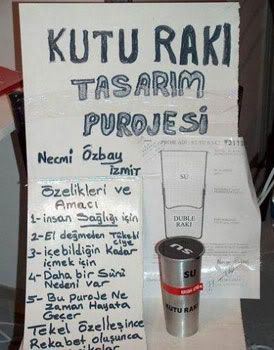 KUTU RAKI
TASARIM
PUROJESİ
Necmi Özbay
İZMİT
SU
DUBLE
RAKI
Özelikleri ve
Amacı
1- insan Sağlığı için
2- El değmeden Tüketi
ciye
3- içebildiğin Kadar
içmek için
4- Daha bir Sürü
Nedeni var
5- Bu puroje Ne
Zaman Hayata
Geçer
Tekel Özelleşince
Rekabet oluşunca
SU
SU
KUTU RAKI